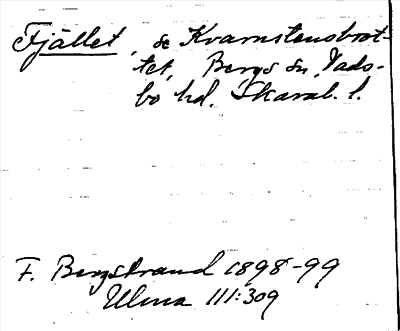 Fjället, se Kvarnstensbrot-
tet, Bergs sn, Vads-
bo hd. Skarab. l.
F. Bergstrand 1898-99
Ulma 111:309